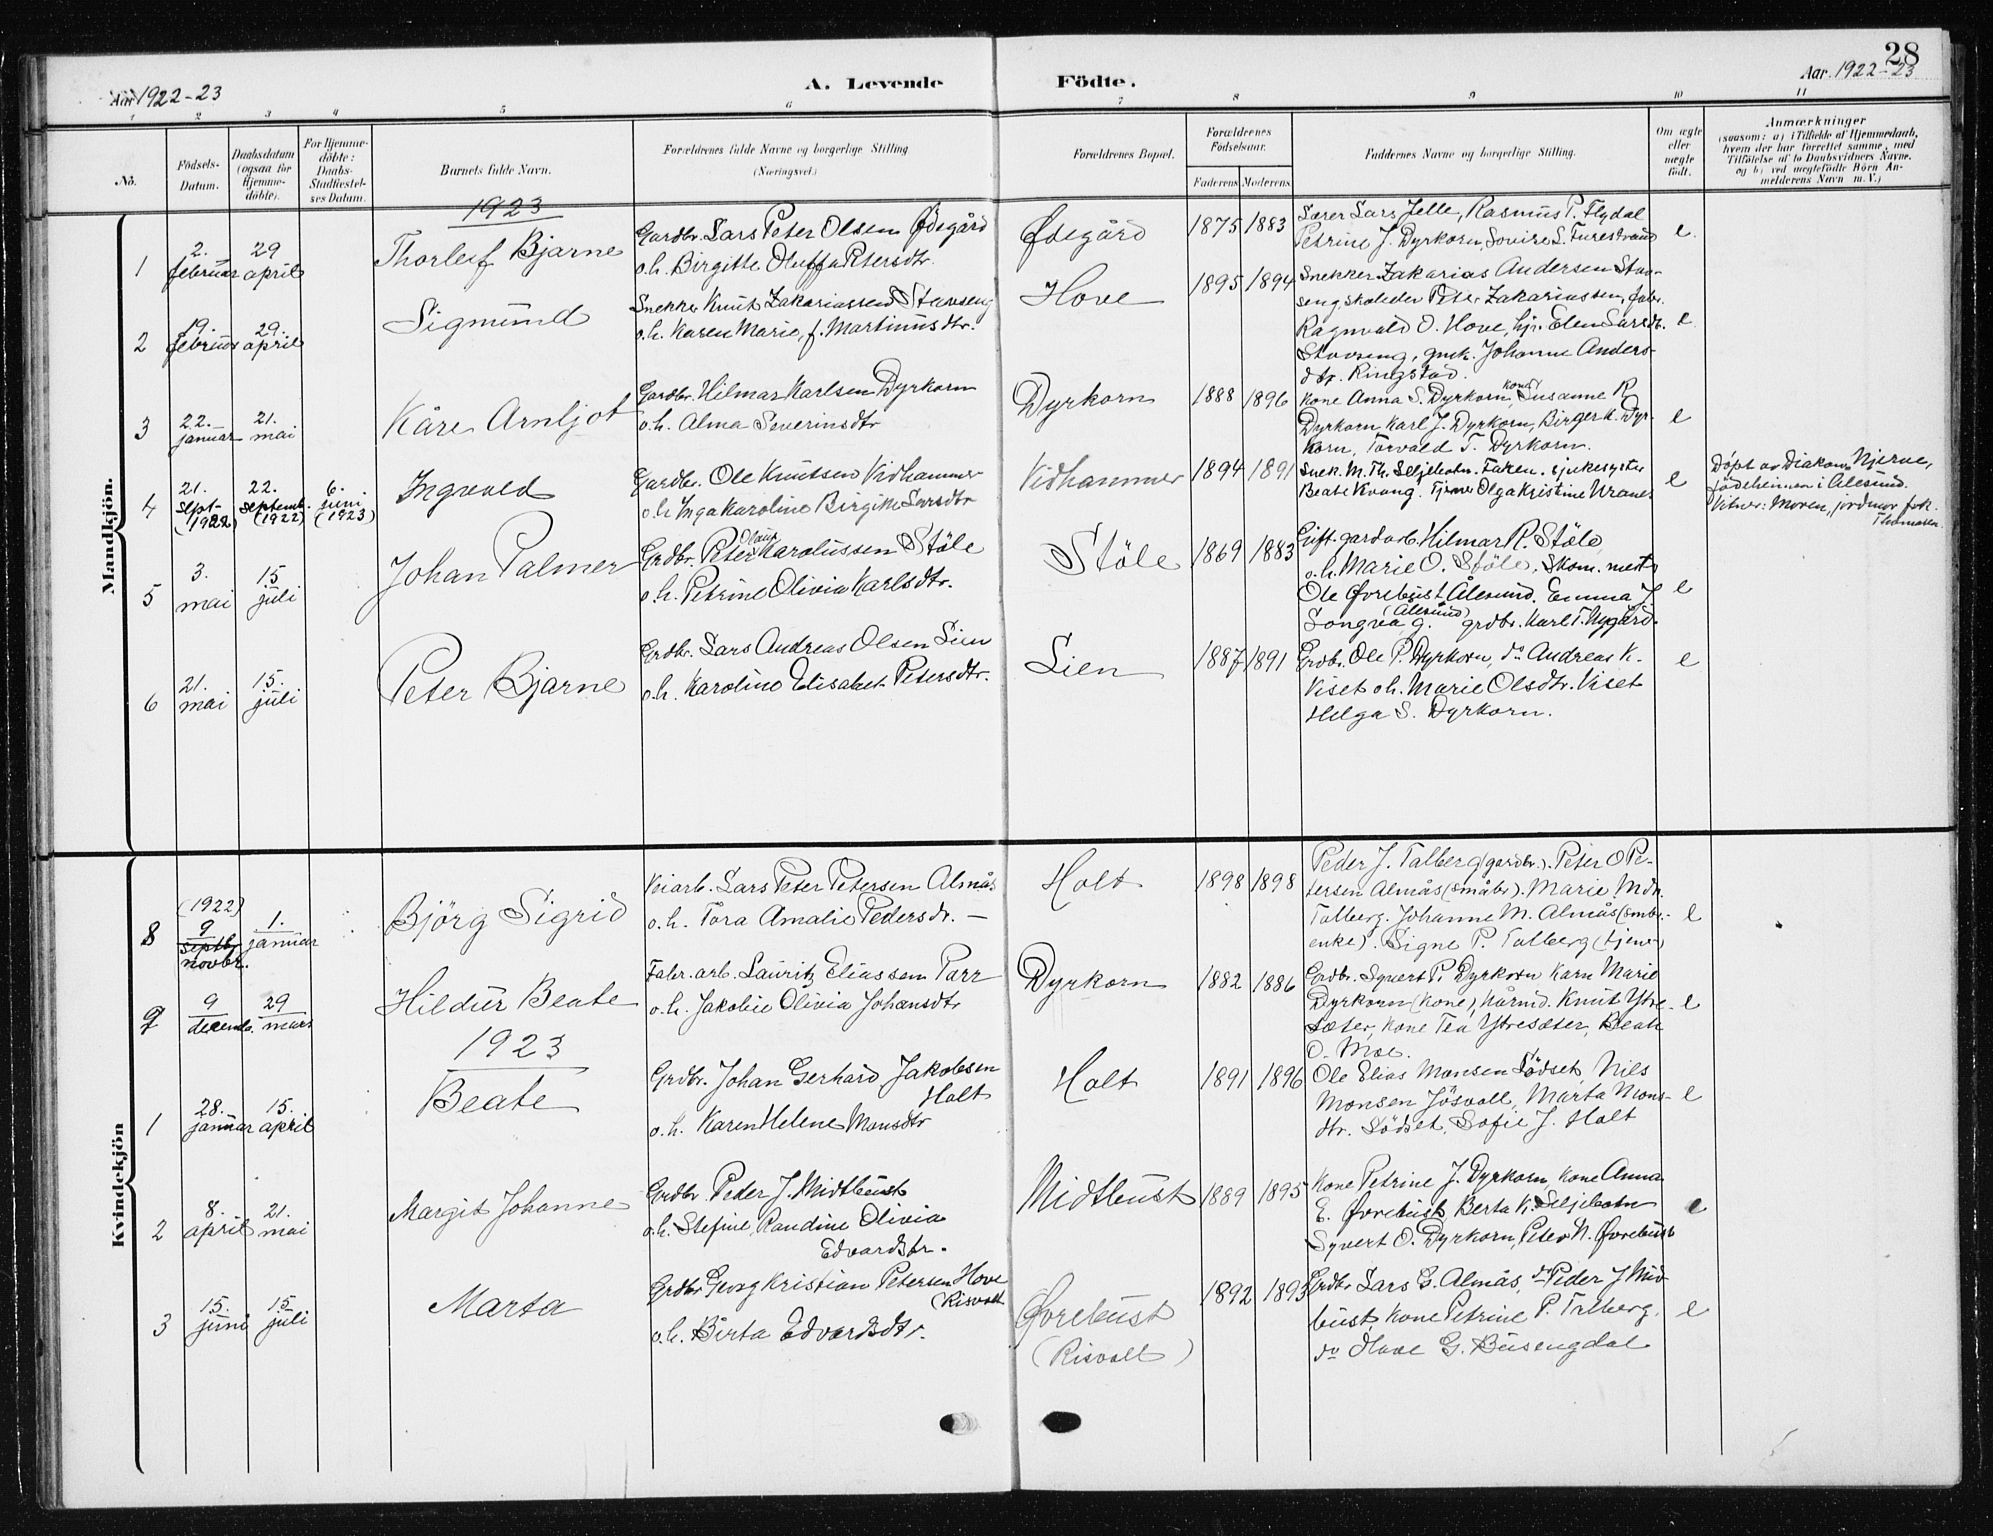 28
Aar 1922-23
A. Levende
Födte.
Aar 1922-23
1 2 3 4 5 6 7 8 9 10 11
No.
Födsels-
Datum.
Daabsdatum
(ogsaa for
Hjemme-
döbte).
For Hjemme-
döbte:
Daabs-
Stadfæstel-
ses Datum.
Barnets fulde Navn.
Forældrenes fulde Navne og borgerlige Stilling
(Næringsvei.)
Forældrenes Bopæl.
Forældrenes
Födselsaar.
Faderens. Moderens.
Faddernes Navne og borgerlige Stilling.
Om ægte
eller
uægte
födt.
Anmærkninger
(saasom: a) i Tilfælde af Hjemmedaab,
hvem der har forrettet samme, med
Tilföielse af to Daabsvidners Navne.
og b) ved uægtefödte Börn An-
melderens Navn m. V.)
Mandkjön.
1923
1
2.
februar
29
april
Thorleif Bjarne
Gardbr. Lars Peter Olsen Ødegård
o.h. Birgitte Oluffa Petersdtr.
Ødegård
1875 1883
Lærer Lars Jelle, Rasmus P. Flydal
Petrine J. Dyrkorn, Lovise L. Furestrand
e.
2
19.
februar
29.
april
Sigmund
Snekker Knut Zakariassen Stavseng
o.h. Karen Marie, f. Martinusdtr.
Hove
1895 1894
Snekker Zakarias Andersen Stav-
seng, skoleder Peter Zakariassen, fabr.
Ragnvald O. Hove, hjr. Elen Larsdtr.
Stavseng, gmk. Johanne Anders-
dtr. Ringstad.
e
3
22.
januar
21.
mai
Kåre Arnljot
Gardbr. Hilmar Karlsen Dyrkorn
o.h. Alma Severinsdtr
Dyrkorn
1888 1896
Kone Anna S. Dyrkorn, kone Susanne R.
Dyrkorn, Karl J. Dyrkorn, Birger K. Dyr-
korn, Torvald T. Dyrkorn.
e
4
21.
sept-
(1922)
22.
septemb.
(1922)
6.
juni
(1923)
Ingvald
Gardbr. Ole Knutsen Vidhammer
o.h. Inga Karoline Birgitte Larsdtr
Vidhammer
1894 1891
Snek. M. Th. Seljebotn. Faren. sjukesyster
Beate Kvang. Tjener Olga Kristine Uranes
e
Döpt av Diakon Njerve,
födeheimen i Ålesund.
Vitner: Moren, jordmor frk.
Thomasen.
5
3.
mai
15
juli
Johan Palmer
Grdbr. Peter Olaus Karolussen Støle
o.h. Petrine Olivia Karlsdtr.
Støle
1869 1883
Gift. gardarb. Hilmar R. Støle
o.h. Marie O. Støle, Skom. mest.
Ole Øvrebust Ålesund. Emma J.
Songva g. (Alesund) grdbr. Karl T. Nygård.
e
6
21.
mai
15.
juli
Peter Bjarne
Grdbr. Lars Andreas Olsen Lien
o.h. Karoline Elisabet Petersdtr.
Lien
1887 1891
Grdbr. Ole P. Dyrkorn, do Andreas K.
Viset o.h. Marie Olsdtr. Viset
Helga S. Dyrkorn.
e
Kvindekjön
8
(1922)
9
septb
novbr.
1.
januar
Björg Sigrid
Keiarb. Lars Peter Petersen Almås
o.h. Tora Amalie Pedersdr. —
Holt
1898 1898
Peder J. Talberg (gardbr.). Peter O Pe-
tersen Almås (småbr). Marie Mdtr.
Talberg. Johanne M. Almås (småbr.-
enke). Signe P. Talberg (tjener)
e
9
9
decemb.
29
mars
Hildur Beate
Fabr. arb. Lauritz Eliassen Parr
o.h. Jakobie Olivia Johansdtr
Dyrkorn
1882 1886
Grdbr. Syvert P. Dyrkorn Karn Marie
Dyrkorn (kone), kårmd. Knut Ytre-
sæter, kone Tea Ytresæter, Beate
O. Moe.
e
1923
1
28.
januar
15.
april
Beate
Grdbr. Johan Gerhard Jakobsen
Holt
o.h. Karen Helene Monsdtr
Holt
1891 1896
Ole Elias Monsen Lødset, Nils
Monsen Jösvoll, Marta Mons-
dtr. Lødset, Sofie J. Holt
e
2
8.
april
21.
mai
Margit Johanne
Grdbr. Peder J. Midtbust
o.h. Stefine, Randine Olivia
Edvardsdtr.
Midtbust
1889 1895
Kone Petrine J. Dyrkorn, kone Anna
E. Øvrebust, Berta K. Seljebotn
Syvert O. Dyrkorn, Peter N. Øvrebust
e
3
15.
juni
15
juli
Marta
Grdbr Georg Kristian Petersen Hove
(Risvoll
o.h. Berta Edvardsdtr.
Øvrebust
(Risvoll)
1892 1893
Grdbr Lars G. Almås, do Peder J Mid-
bust, kone Petrine P. Talberg,
do Hove G. Busengdal
e